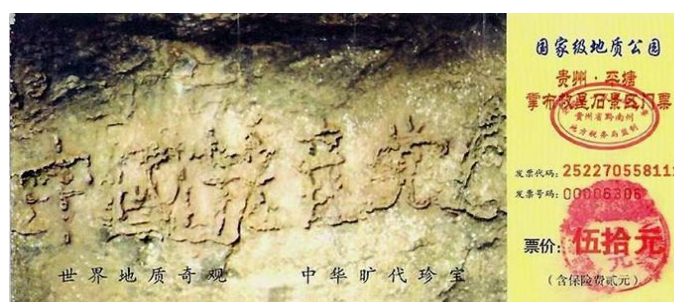 中國共産党亡
世界地质奇观 中华旷代珍宝
国家级地质公园
贵州·平塘
掌布救星石景区门票
贵州省黔南州
地方税务局监制
发票代码: 25227055811
发票号码: 00006306
票价: 伍拾元
(含保险费贰元)